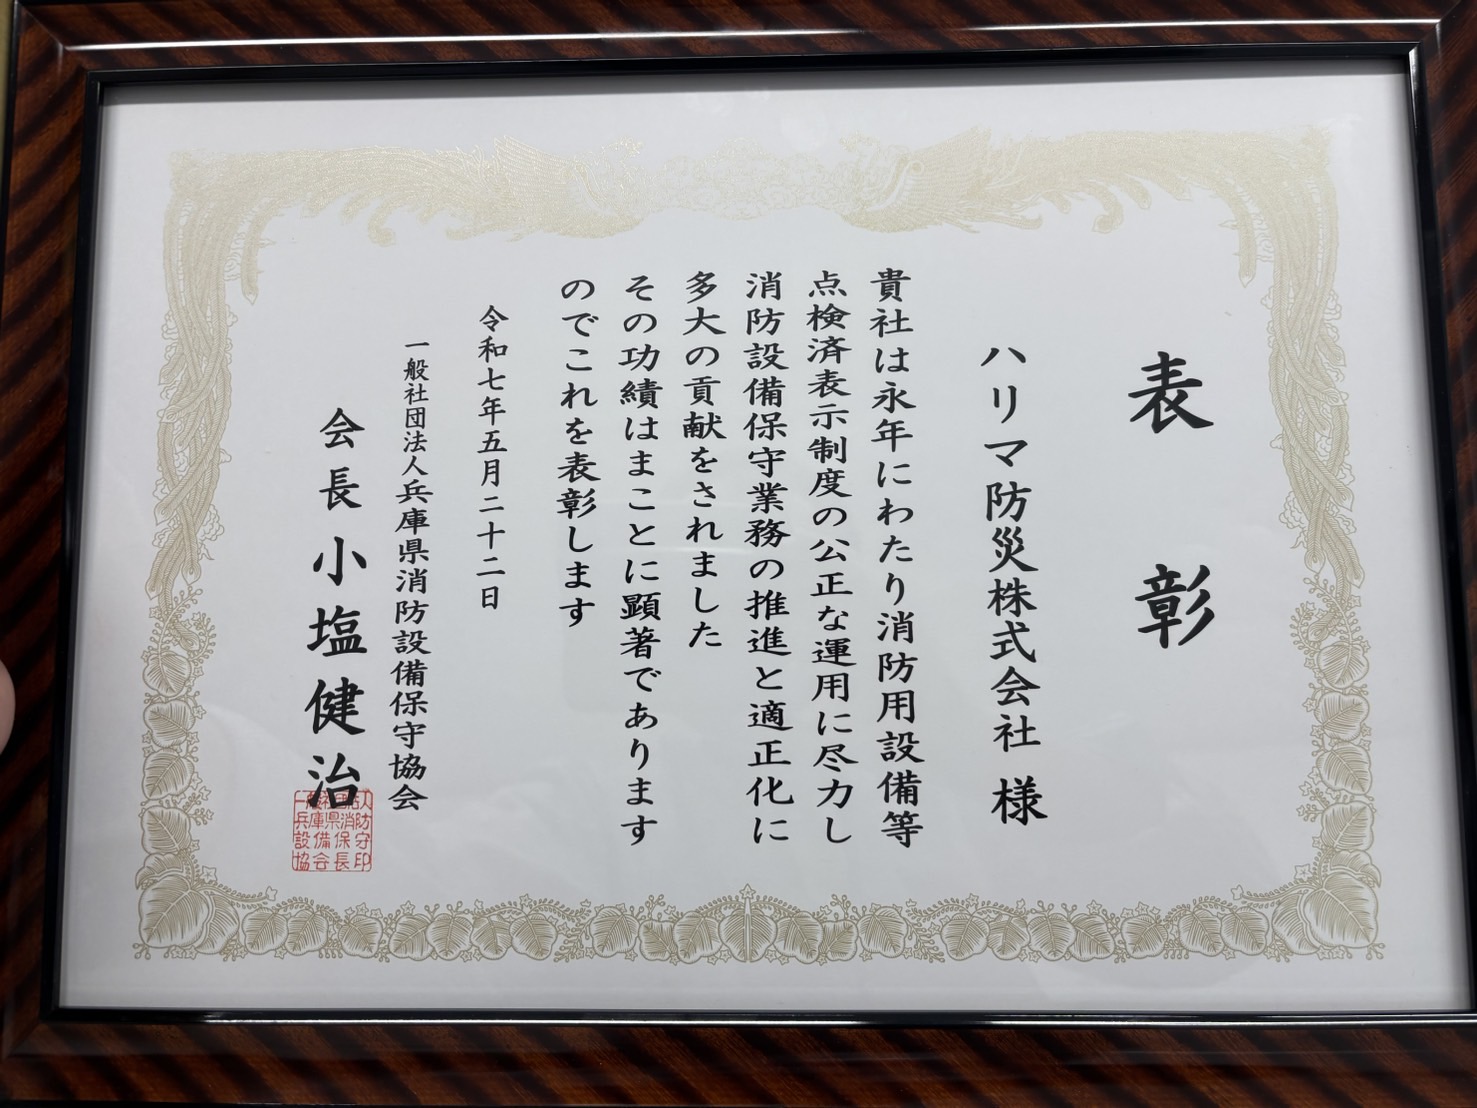 表彰
ハリマ防災株式会社 様
貴社は永年にわたり消防用設備等
点検済表示制度の公正な運用に尽力し
消防設備保守業務の推進と適正化に
多大の貢献をされました
その功績はまことに顕著であります
のでこれを表彰します
令和七年五月二十二日
一般社団法人兵庫県消防設備保守協会
会長 小塩健治
一般社団法人
兵庫県消防
設備保守
協会長印